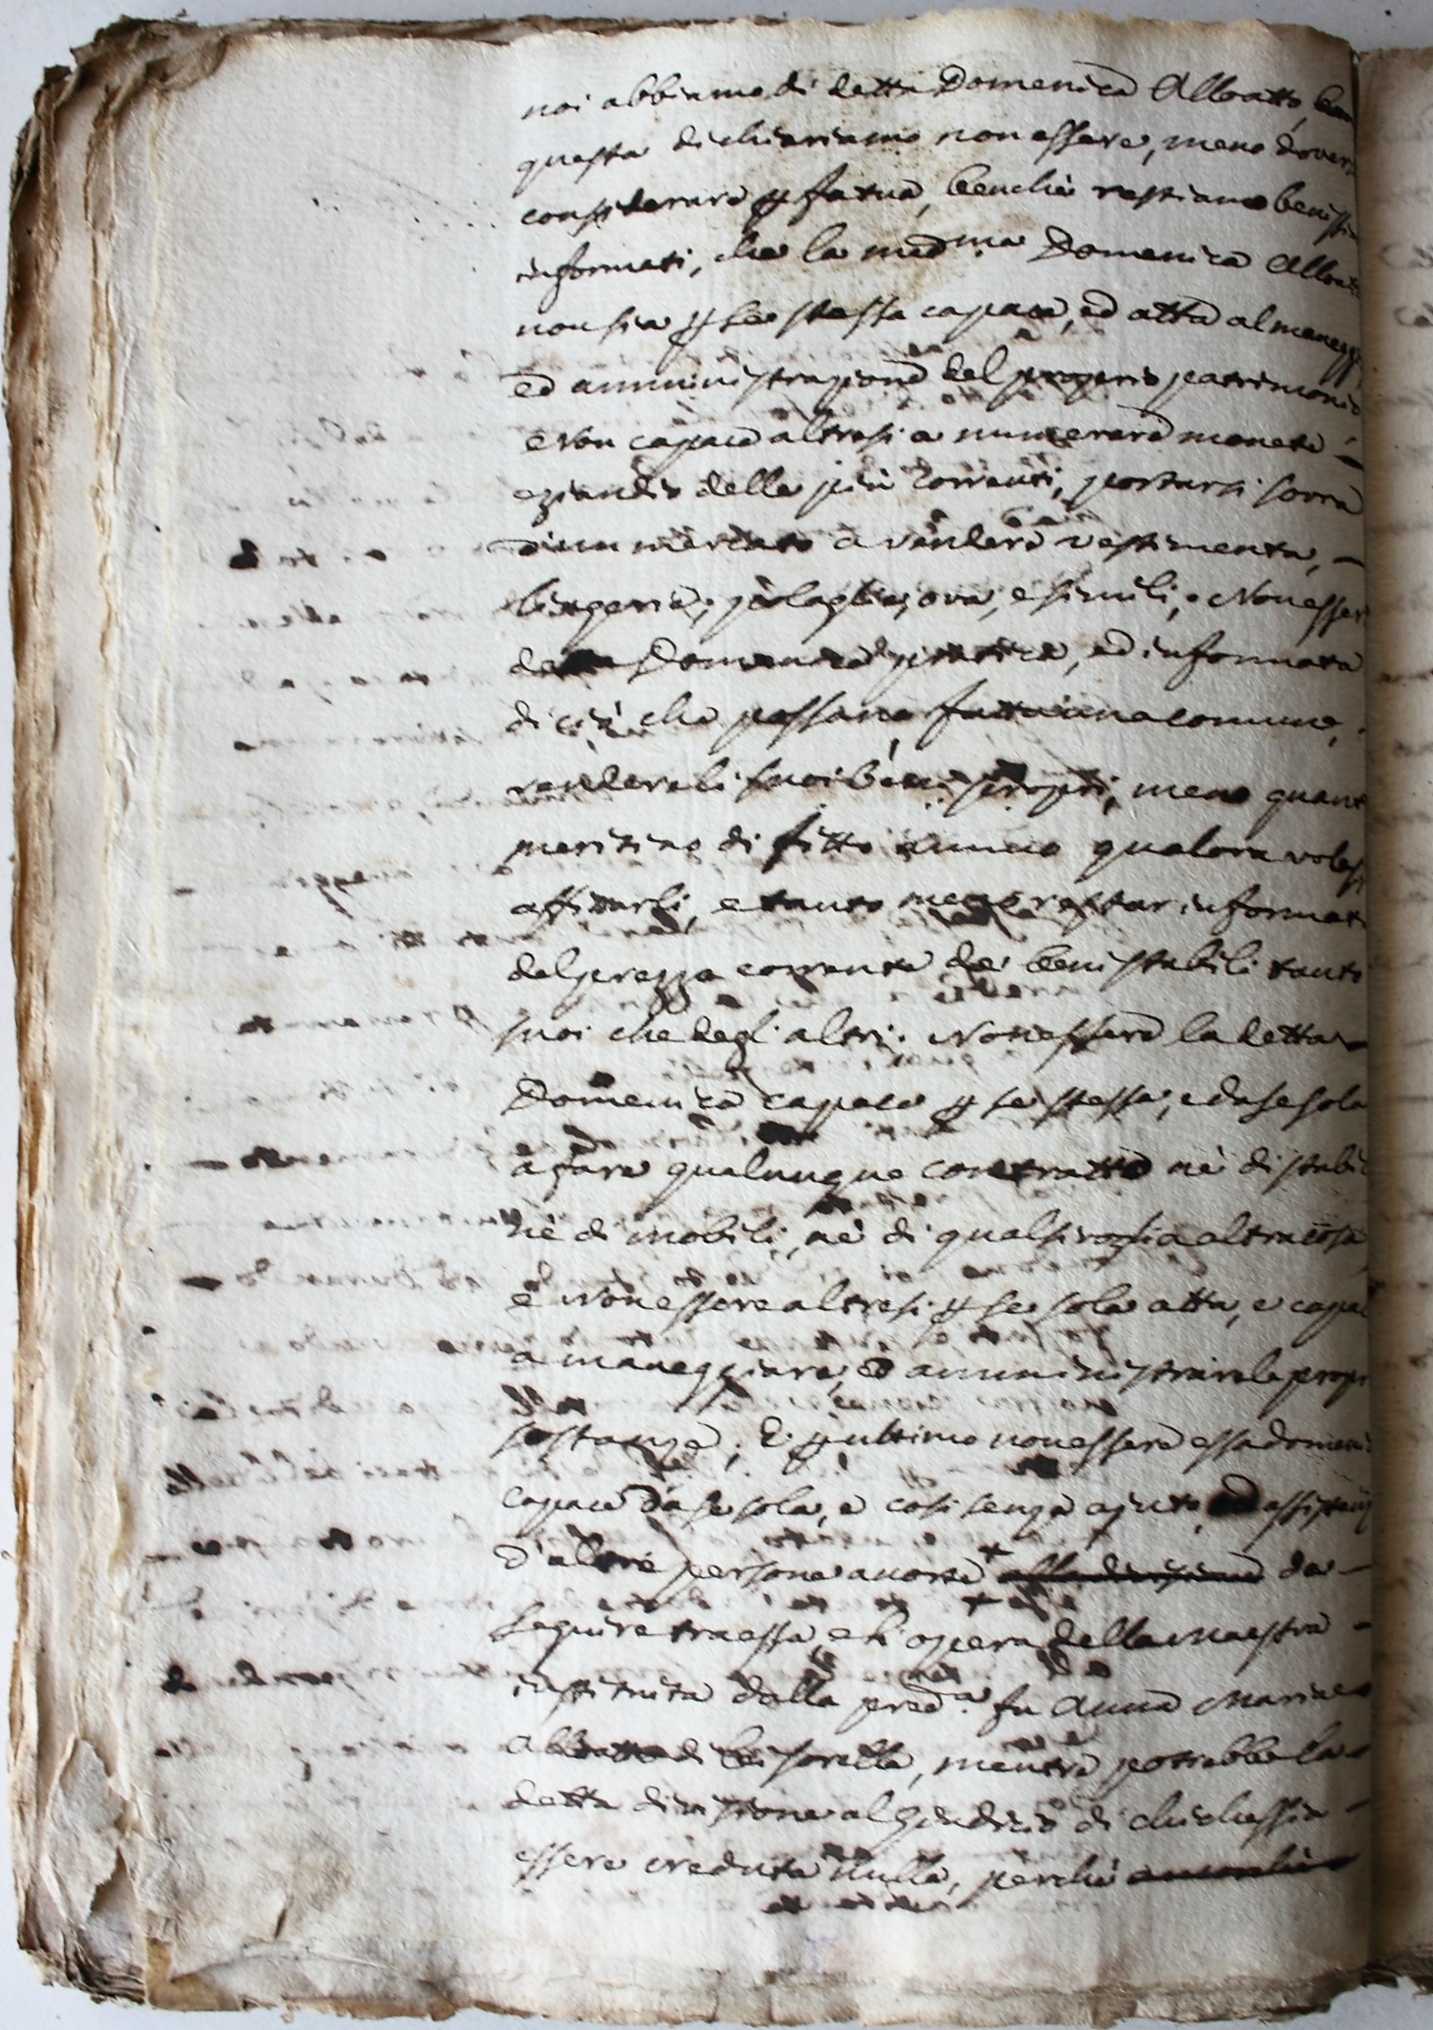 noi abbiamo di detta Domenica Alloatto,
questa dichiariamo non essere, meno dover
considerare p fatua, benche restiamo beniss
informati, che la med.ma Domenica Alloat
non sia p se stessa capace, ed atta al manegg
ed amministrazione del proprio patrimonio
e Non capace altresi a numerare monete
eziandio delle piu correnti, portarsi sovra
d'un mercato a vendere vestimenta, –
lingeria, polaglia, ova, e simili; Non esser
detta Domenica pratica, ed informata
di ciò che possano fatta una comune,
rendere li suoi beni propri, meno quant
meritino di fitto annuo qualora voless
affittarli, e tanto meno restar informat
del prezzo corrente de' beni stabili tanto
suoi che degl'altri. Non essere la detta
Domenica capace p se stessa, e da se sola
a fare qualunque contratto nè di stabil
nè di mobili, nè di qualsivoglia altra cosa
e Non essere altresi p se sola atta, e capac
a maneggiare, ed amministrare le propr
sostanze; E p ultimo non essere essa domeni
capace da se sola, e così senza ajuto, ed assistenz
d'altre persone da –
seguire tra essa, e l'opera della Maestra –
instituita dalla pred.a fu Anna Maria
di lei sorella, mentre potrebbe la
detta divisione al Giudicio di chichessia –
essere creduta nulla, perchè